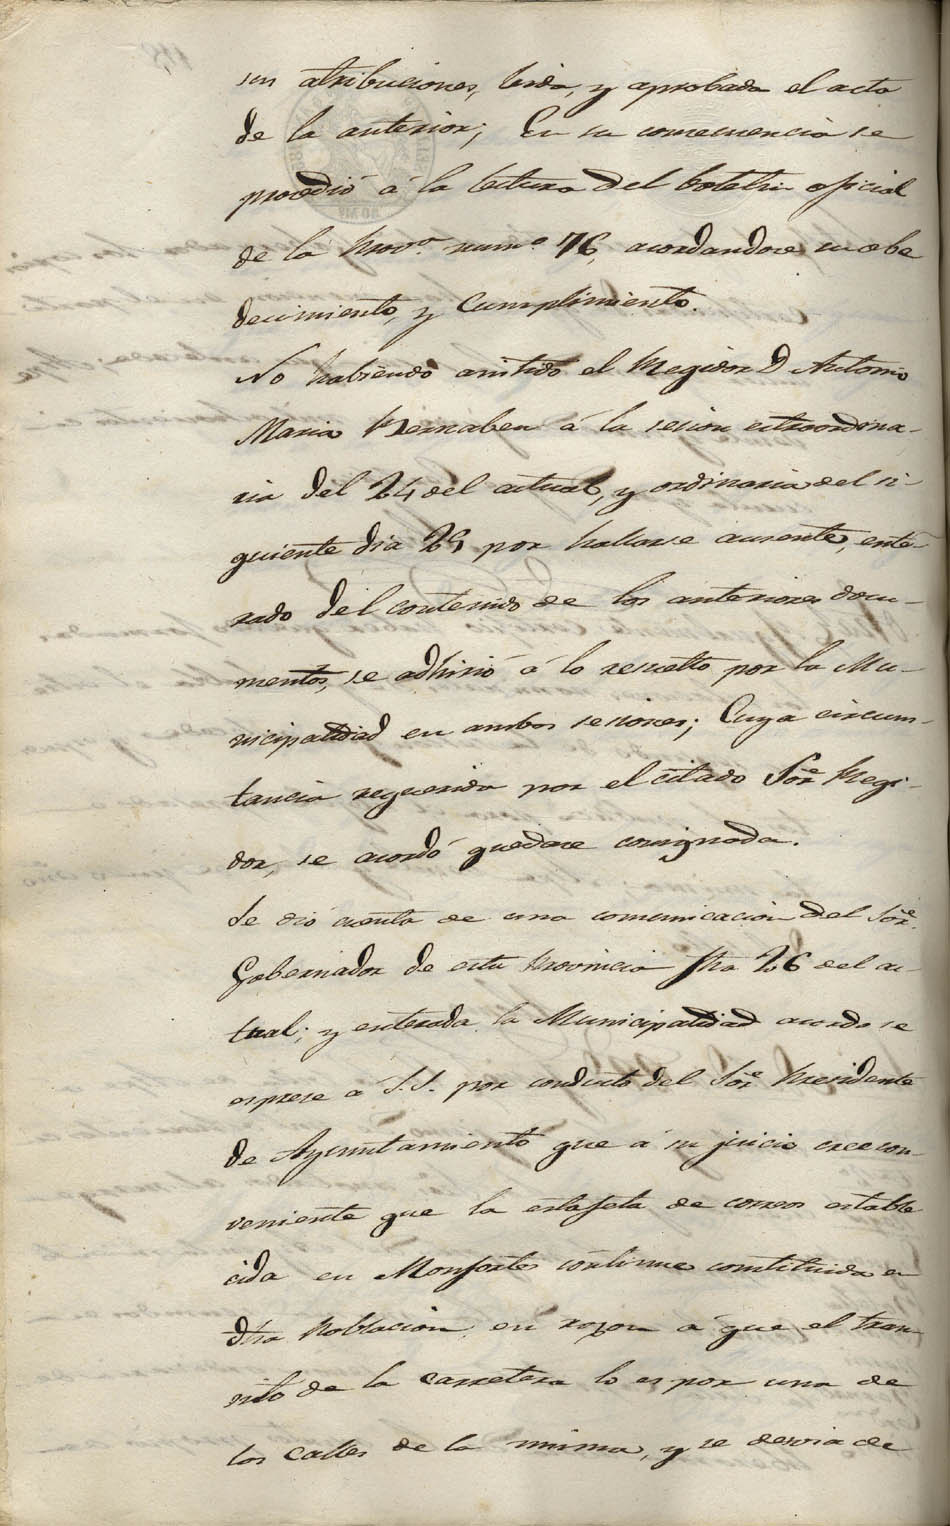 sus atribuciones, leida, y aprobada el acta
de la anterior; En su consecuencia se
procedió á la lectura del boletin oficial
de la Prov.a num.o 76, acordandose su obe
decimiento, y Cumplimiento.
No habiendo asistido el Regidor D Antonio
Maria Bernabeu á la sesion extraordina-
ria del 24 del actual, y ordinaria del si-
guiente dia 25 por hallarse ausente, ente-
rado del contenido de los anteriores docu-
mentos, se adhirió á lo resuelto por la Mu-
nicipalidad en ambas sesiones; Cuya circuns-
tancia requerida por el citado Sor. Regi-
dor, se acordó quedase consignada.
Se dió cuenta de una comunicacion del Sor.
Gobernador de esta Provincia fha 26 del ac-
tual; y enterada la Municipalidad acordo se
esprese a S.S. por conducto del Sor. Presidente
de Ayuntamiento que á su juicio cree con-
veniente que la estafeta de correos estable
cida en Monforte continue constituida en
dha Poblacion en razon á que el tran-
sito de la carretera lo es por una de
las calles de la misma, y se desvia de